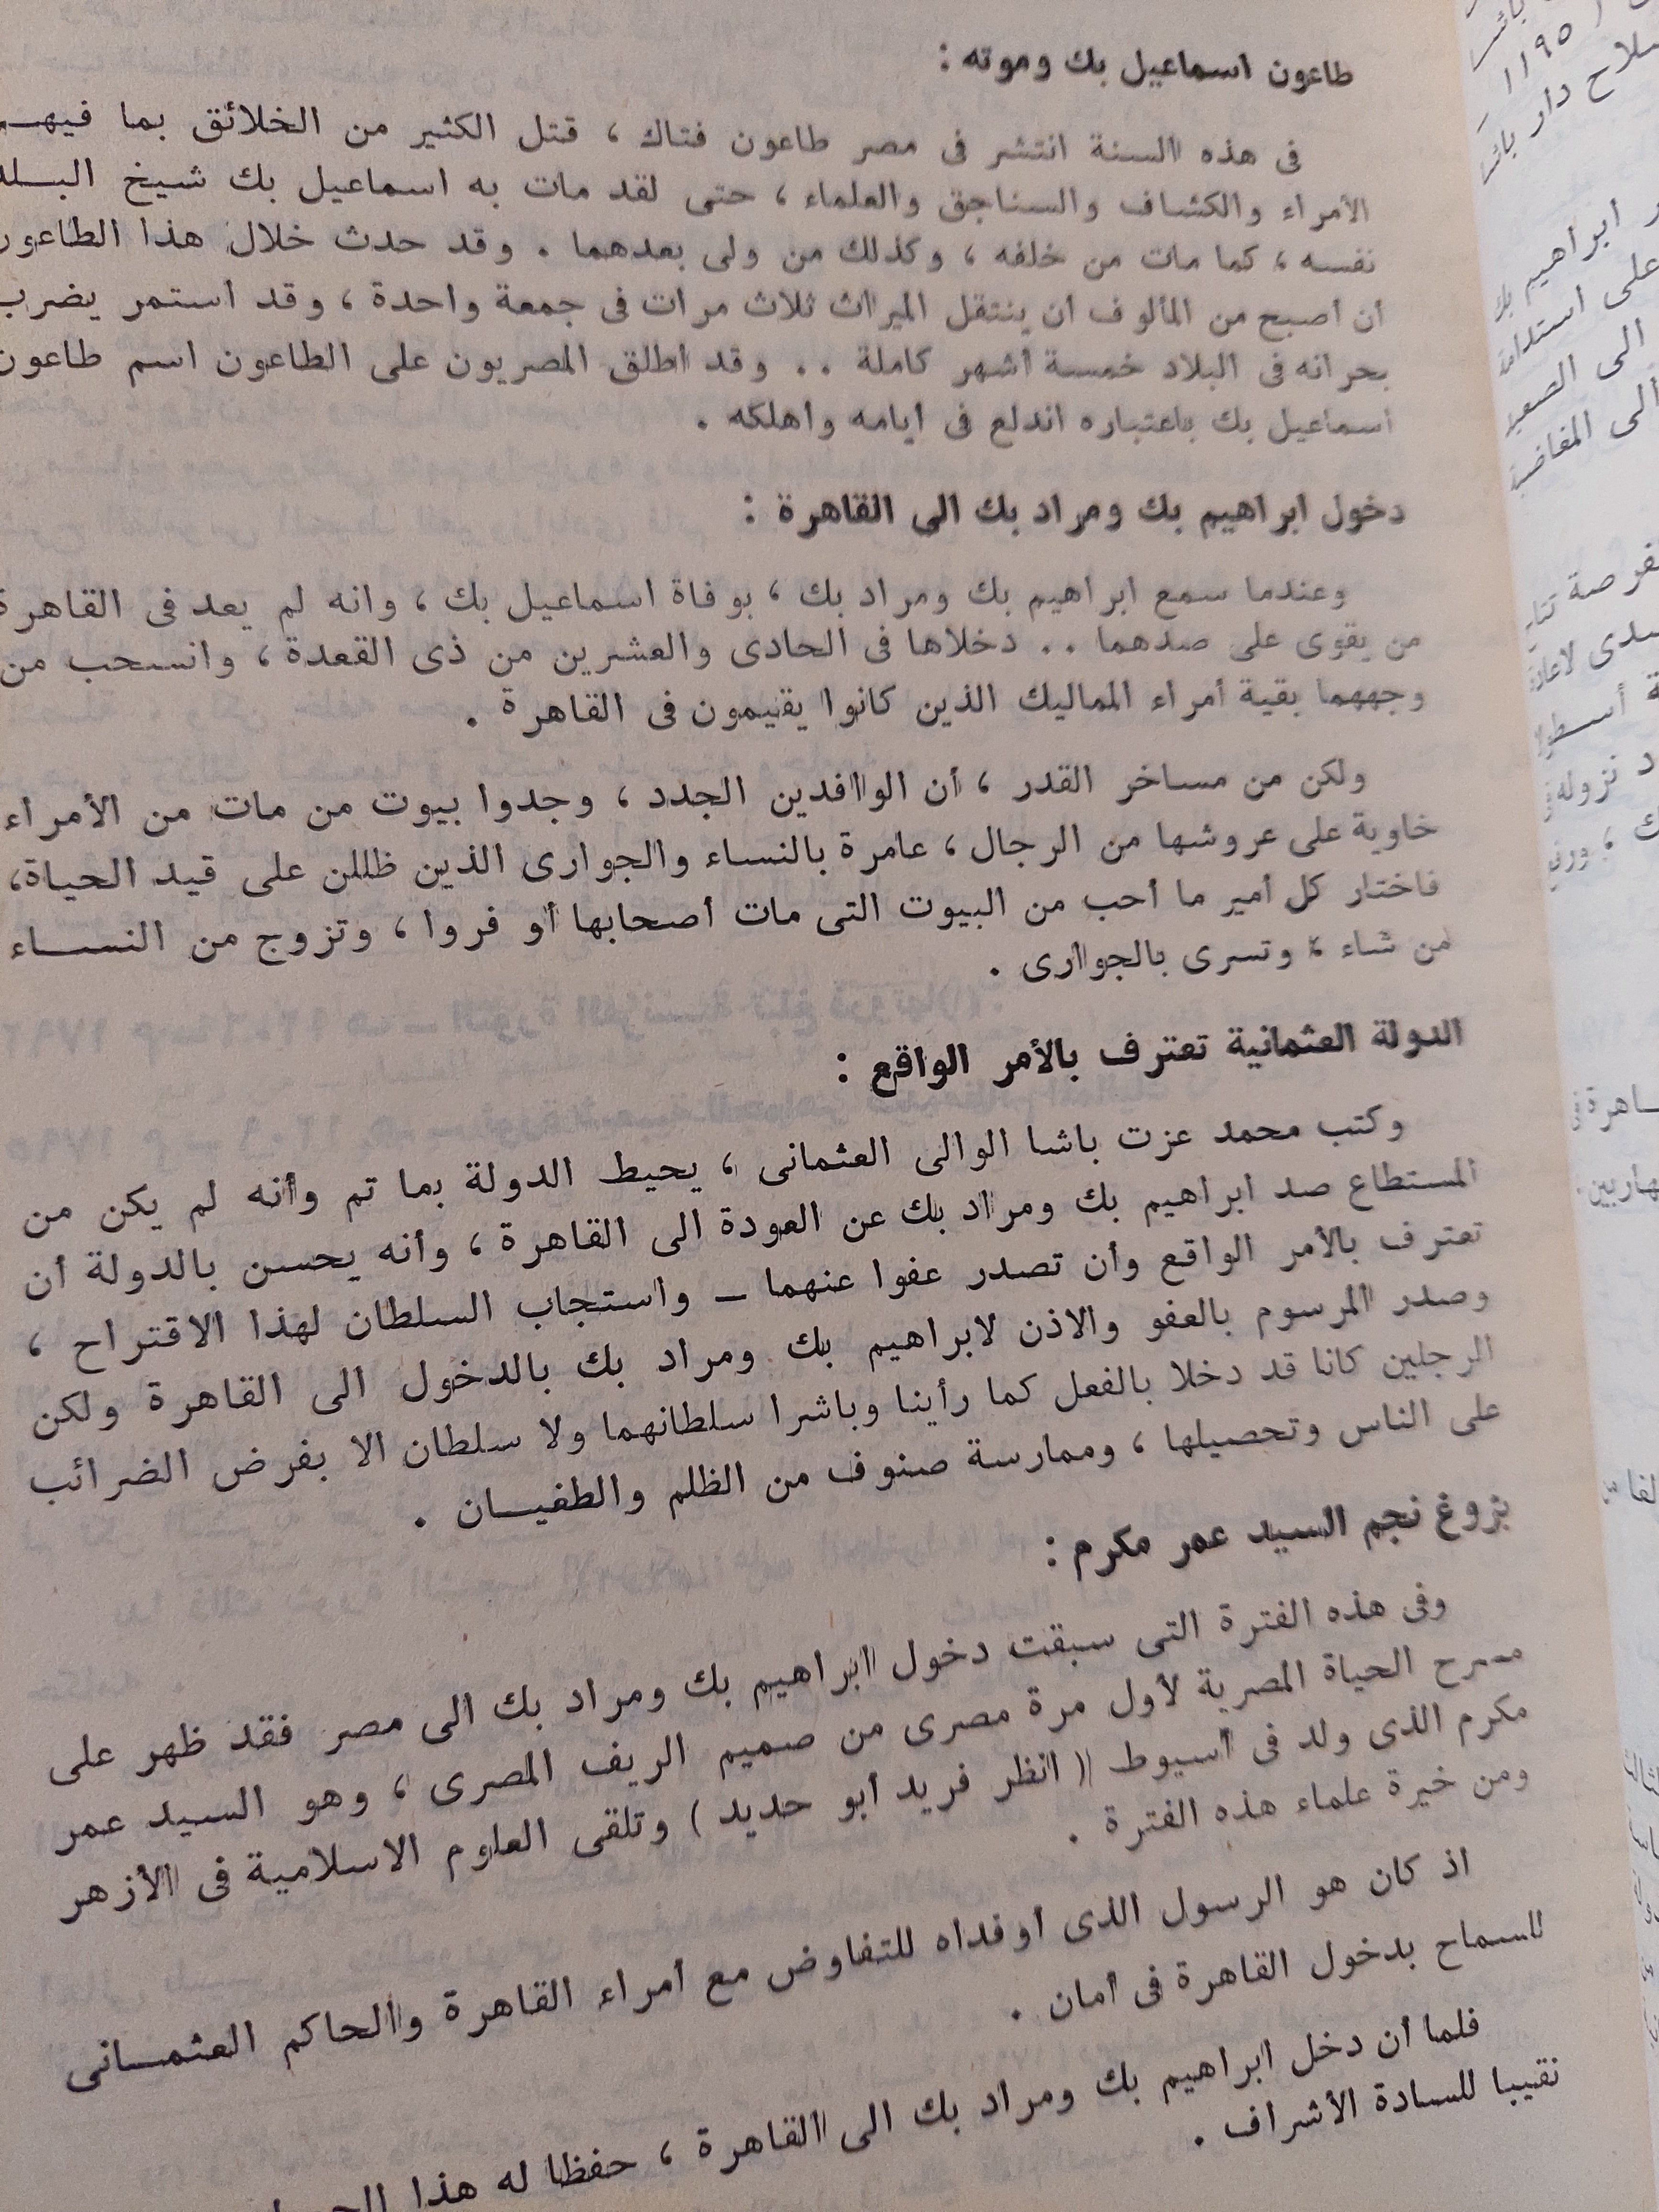 طاعون اسماعيل بك وموته :
فى هذه السنة انتشر فى مصر طاعون فتاك ، قتل الكثير من الخلائق بما فيهم
الأمراء والكشاف والسناجق والعلماء ، حتى لقد مات به اسماعيل بك شيخ البلد
نفسه ، كما مات من خلفه ، وكذلك من ولى بعدهما . وقد حدث خلال هذا الطاعون
أن أصبح من المألوف أن ينتقل الميراث ثلاث مرات فى جمعة واحدة ، وقد استمر يضرب
بجرانه فى البلاد خمسة أشهر كاملة .. وقد اطلق المصريون على الطاعون اسم طاعون
اسماعيل بك باعتباره اندلع فى ايامه وأهلكه .
دخول ابراهيم بك ومراد بك الى القاهرة :
وعندما سمع ابراهيم بك ومراد بك ، بوفاة اسماعيل بك ، وانه لم يعد فى القاهرة
من يقوى على صدهما .. دخلاها فى الحادى والعشرين من ذى القعدة ، وانسحب من
وجههما بقية أمراء المماليك الذين كانوا يقيمون فى القاهرة .
ولكن من مساخر القدر ، أن الوافدين الجدد ، وجدوا بيوت من مات من الأمراء
خاوية على عروشها من الرجال ، عامرة بالنساء والجوارى الذين ظللن على قيد الحياة،
فاختار كل أمير ما أحب من البيوت التى مات أصحابها أو فروا ، وتزوج من النساء
من شاء ، وتسرى بالجوارى .
الدولة العثمانية تعترف بالأمر الواقع :
وكتب محمد عزت باشا الوالى العثمانى ، يحيط الدولة بما تم وأنه لم يكن من
المستطاع صد ابراهيم بك ومراد بك عن العودة الى القاهرة ، وأنه يحسن بالدولة أن
تعترف بالأمر الواقع وأن تصدر عفوا عنهما — واستجاب السلطان لهذا الاقتراح ،
وصدر المرسوم بالعفو والاذن لابراهيم بك ومراد بك بالدخول الى القاهرة ولكن
الرجلين كانا قد دخلا بالفعل كما رأينا وباشرا سلطانهما ولا سلطان الا بفرض الضرائب
على الناس وتحصيلها ، وممارسة صنوف من الظلم والطغيان .
بزوغ نجم السيد عمر مكرم :
وفى هذه الفترة التى سبقت دخول ابراهيم بك ومراد بك الى مصر فقد ظهر على
مسرح الحياة المصرية لأول مرة مصرى من صميم الريف المصرى ، وهو السيد عمر
مكرم الذى ولد فى أسيوط ( انظر فريد أبو حديد ) وتلقى العلوم الاسلامية فى الأزهر
ومن خيرة علماء هذه الفترة .
اذ كان هو الرسول الذى أوفداه للتفاوض مع أمراء القاهرة والحاكم العثمانى
للسماح بدخول القاهرة فى أمان .
فلما أن دخل ابراهيم بك ومراد بك الى القاهرة ، حفظا له هذا
نقيبا للسادة الأشراف .
١١٩٥
سلاح دار باشا
ابراهيم بك
على استدامة
الى الصعيد
الى المفاضة